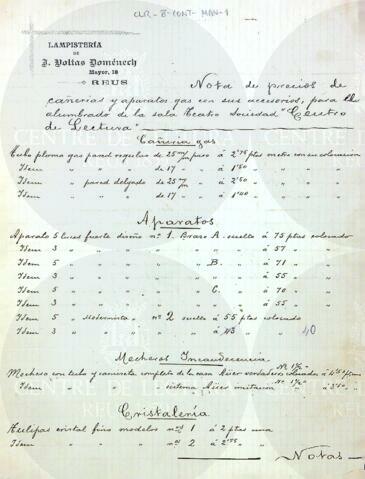 CLR-8-CONT-MAN-1
LAMPISTERÍA
DE
J. Voltas Doménech
Mayor, 18
REUS
Nota de precios de
cañerias y aparatos gas con sus accesorios, para el
alumbrado de la sala Teatro Sociedad "Centro
de Lectura"
Cañeria gas
Tubo plomo gas pared regular de 25 m/m paso á 2'75 ptas metro con su colocacion
Idem " " " " de 17 " " á 1'80 " " " "
Idem " " pared delgada de 25 m/m " á 2'50 " " " "
Idem " " " " de 17 " " á 1'40 " " " "
Aparatos
Aparato 5 luces fuerte diseño nº 1. Brazo A. suelto á 75 ptas colocado
Idem 3 " " " " " " " á 57 " "
Idem 5 " " " " " B. " á 71 " "
Idem 3 " " " " " " " á 55 " "
Idem 5 " " " " " C. " á 70 " "
Idem 3 " " " " " " " á 55 " "
Idem 5 " Modernista nº 2 suelto á 55 ptas colocado
Idem 3 " " " " " á 43 " " 40
Mecheros Incandecencia
Mechero con tubo y camiseta completo de la casa Auer verdadero
Idem " " " " " sistema Auer imitacion
Cristaleria
Tulipas cristal fino modelos nos 1 á 2 ptas una
Idem " " " nos 2 á 2'75 " "
Notas
CENTRE DE LECTURA
REUS